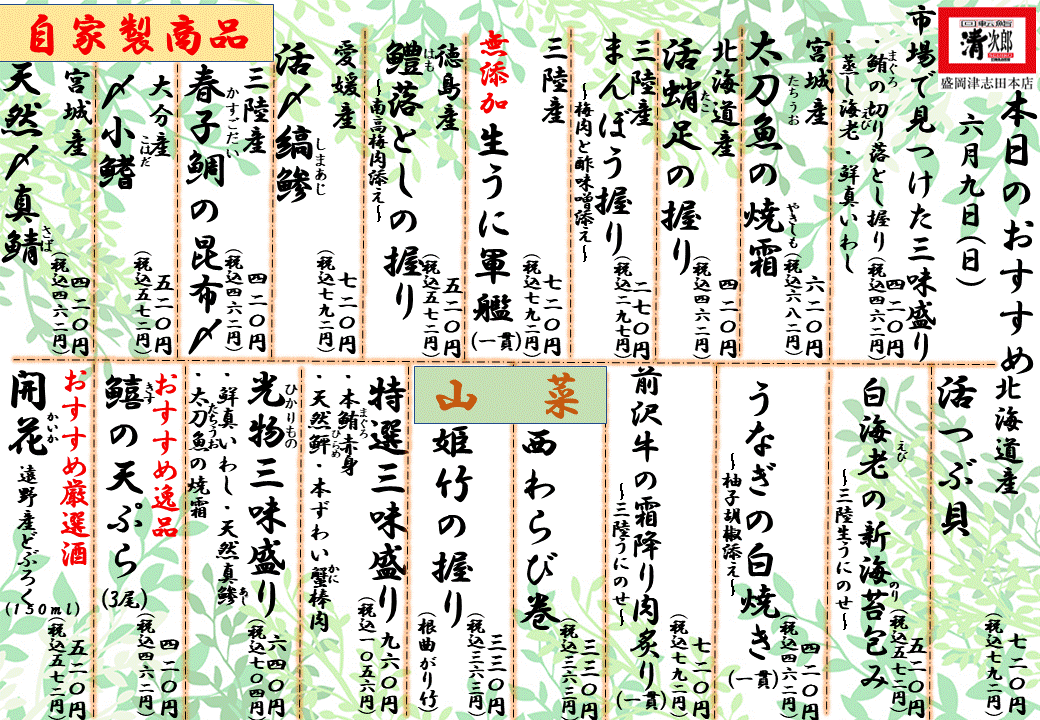 回転鮨
清次郎
盛岡津志田本店
本日のおすすめ
六月九日(日)
市場で見つけた三味盛り
・鮪の切り落とし握り
まぐろ
・蒸し海老・鮮真いわし
えび
四二〇円
(税込四六二円)
宮城産
太刀魚の焼霜
たちうお
やきしも
六二〇円
(税込六八二円)
北海道産
活蛸足の握り
たこ
四二〇円
(税込四六二円)
三陸産
まんぼう握り
～梅肉と酢味噌添え～
二七〇円
(税込二九七円)
三陸産
無添加
生うに軍艦(一貫)
七二〇円
(税込七九二円)
徳島産
鱧落としの握り
はも
～南高梅肉添え～
五二〇円
(税込五七二円)
愛媛産
活〆縞鯵
しまあじ
七二〇円
(税込七九二円)
三陸産
春子鯛の昆布〆
かすごだい
四二〇円
(税込四六二円)
自家製商品
大分産
〆小鰭
こはだ
五二〇円
(税込五七二円)
宮城産
天然〆真鯖
さば
四二〇円
(税込四六二円)
北海道産
活つぶ貝
七二〇円
(税込七九二円)
白海老の新海苔包み
えび
のり
～三陸生うにのせ～
五二〇円
(税込五七二円)
うなぎの白焼き(一貫)
～柚子胡椒添え～
四二〇円
(税込四六二円)
前沢牛の霜降り肉炙り(一貫)
～三陸うにのせ～
七二〇円
(税込七九二円)
山菜
西わらび巻
三三〇円
(税込三六三円)
姫竹の握り
(根曲がり竹)
三三〇円
(税込三六三円)
特選三味盛り
・本鮪赤身
まぐろ
・天然鮃・本ずわい蟹棒肉
ひらめ
かに
九六〇円
(税込一〇五六円)
光物三味盛り
ひかりもの
・鮮真いわし・天然真鯵
あじ
・太刀魚の焼霜
たちうお
六四〇円
(税込七〇四円)
おすすめ逸品
鱚の天ぷら(3尾)
きす
四二〇円
(税込四六二円)
おすすめ厳選酒
開花
かいか
遠野産どぶろく
(150ml)
五二〇円
(税込五七二円)